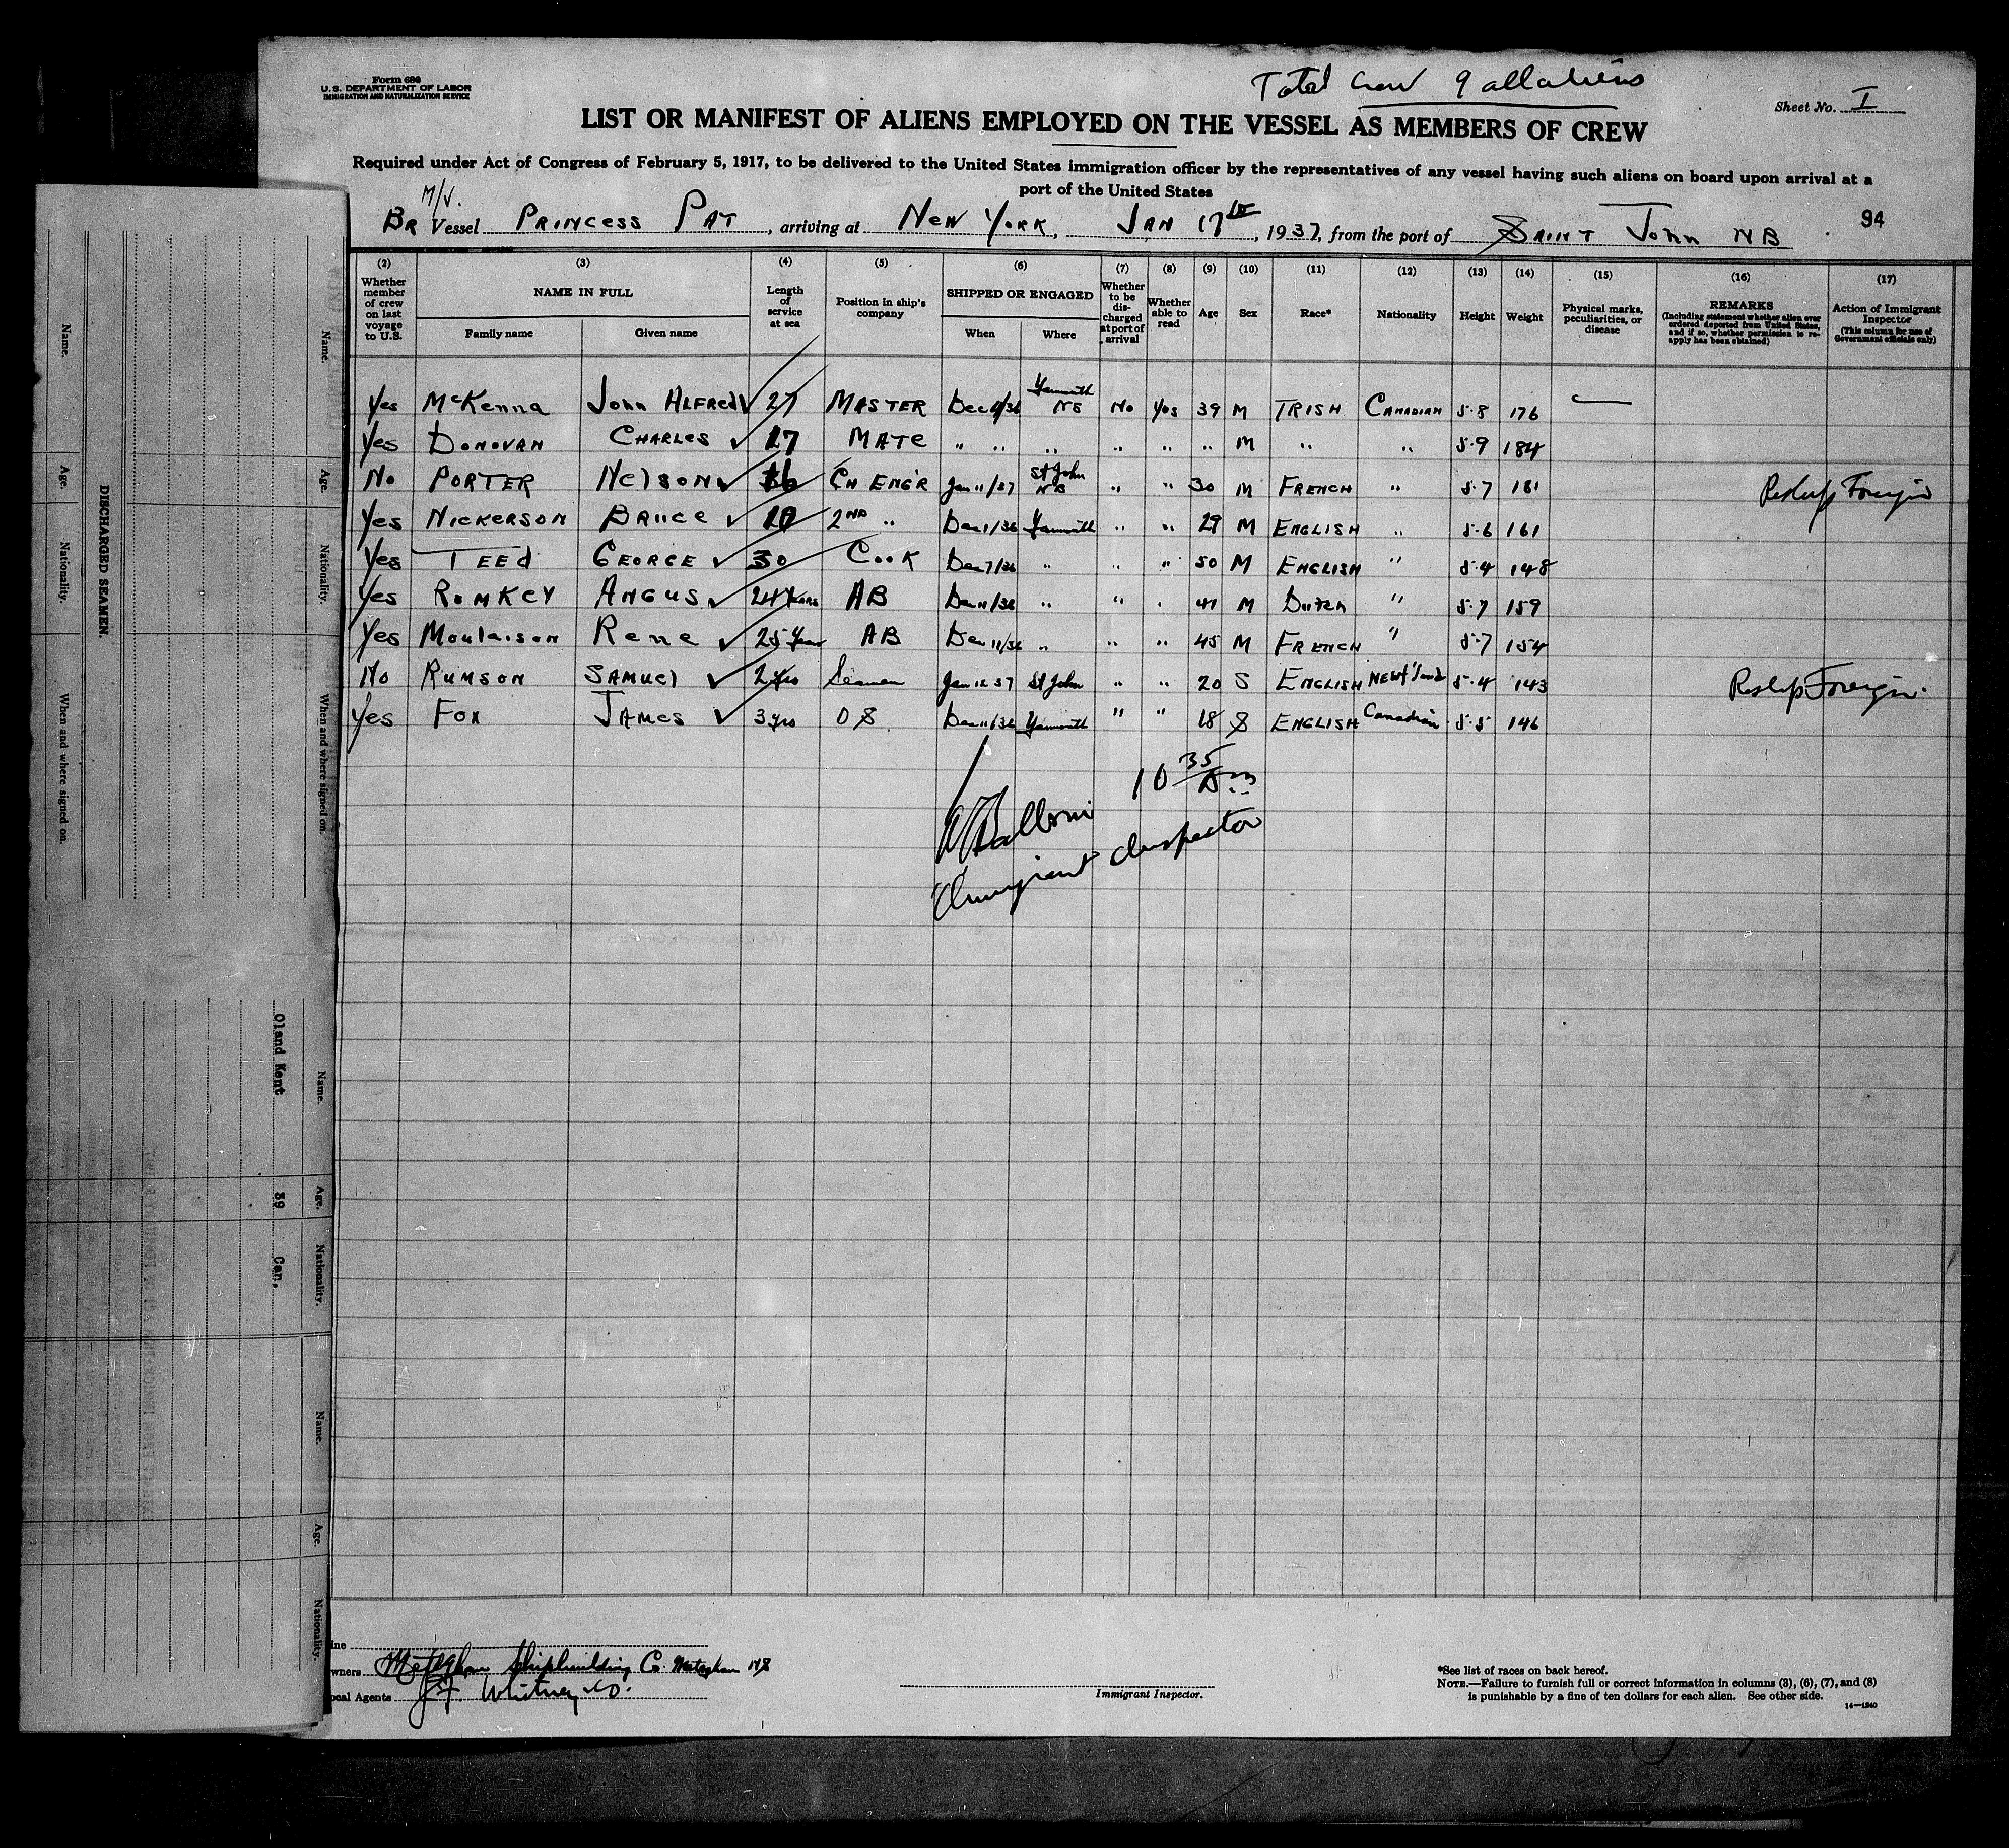 Form 680
U.S. DEPARTMENT OF LABOR
IMMIGRATION AND NATURALIZATION SERVICE
Total crew 9 all aliens
Sheet No. I
LIST OR MANIFEST OF ALIENS EMPLOYED ON THE VESSEL AS MEMBERS OF CREW
Required under Act of Congress of February 5, 1917, to be delivered to the United States immigration officer by the representatives of any vessel having such aliens on board upon arrival at a
port of the United States
M/V.
BR Vessel PRINCESS PAT, arriving at NEW YORK, JAN 17th, 1937, from the port of SAINT JOHN NB
94
(2) (3) (4) (5) (6) (7) (8) (9) (10) (11) (12) (13) (14) (15) (16) (17)
Whether member of crew on last voyage to U.S.
NAME IN FULL
Family name Given name
Length of service at sea
Position in ship's company
SHIPPED OR ENGAGED
When Where
Whether to be discharged at port of arrival
Whether able to read
Age
Sex
Race*
Nationality
Height
Weight
Physical marks, peculiarities, or disease
REMARKS
(Including statement whether alien ever ordered deported from United States, and if so, whether permission to reapply has been obtained)
Action of Immigrant Inspector
(This column for use of Government officials only)
Yes McKenna John ALFRED 27 MASTER Dec 11/36 Yarmouth NS No Yes 39 M IRISH CANADIAN 5·8 176 —
Yes DONOVAN CHARLES 17 MATE " " " " " " M " " 5·9 184
No PORTER NELSON 16 CH ENGR Jan 11/37 St John NB " " 30 M FRENCH " 5·7 181 Reship Foreign
Yes NICKERSON BRUCE 10 2ND " Dec 1/36 Yarmouth " " 29 M ENGLISH " 5·6 161
Yes TEED GEORGE 30 COOK Dec 7/36 " " " 50 M ENGLISH " 5·4 148
Yes ROMKEY ANGUS 24 Years AB Dec 11/36 " " " 41 M Dutch " 5·7 159
Yes Moulaison Rene 25 Years AB Dec 11/36 " " " 45 M FRENCH " 5·7 154
No RUMSON SAMUEL 2 yrs Seaman Jan 12 37 St John " " 20 S ENGLISH Newf'land 5·4 143 Reship Foreign.
Yes FOX JAMES 3 yrs OS Dec 11/36 Yarmouth " " 18 S ENGLISH Canadian 5·5 146
10 35 am
Immigrant Inspector
wners Meteghan Shipbuilding Co. Meteghan NS
ocal Agents J.F. Whitney Co.
Immigrant Inspector.
*See list of races on back hereof.
NOTE.—Failure to furnish full or correct information in columns (3), (6), (7), and (8)
is punishable by a fine of ten dollars for each alien. See other side.
14—1240
DISCHARGED SEAMEN.
Name. Age. Nationality. When and where signed on.
Name. Age. Nationality. When and where signed on.
Name. Age. Nationality.
Oland Kent 39 Can.
Name. Age. Nationality.